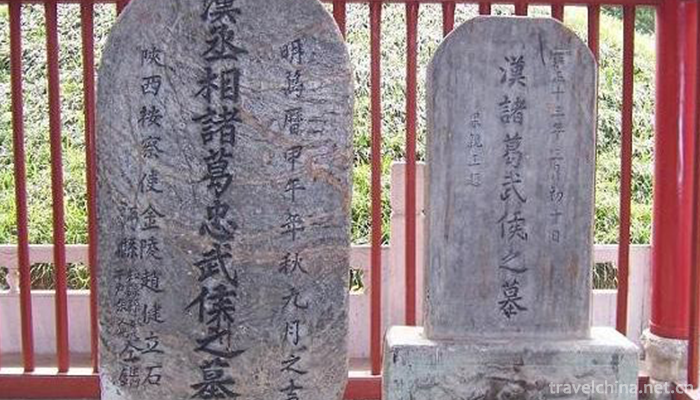 明萬曆甲午年秋九月之吉
漢丞相諸葛忠武侯之墓
陝西按察使金陵趙健立石
雍正十三年三月初十日
漢諸葛武侯之墓
果親王題
travelchina.net.cn